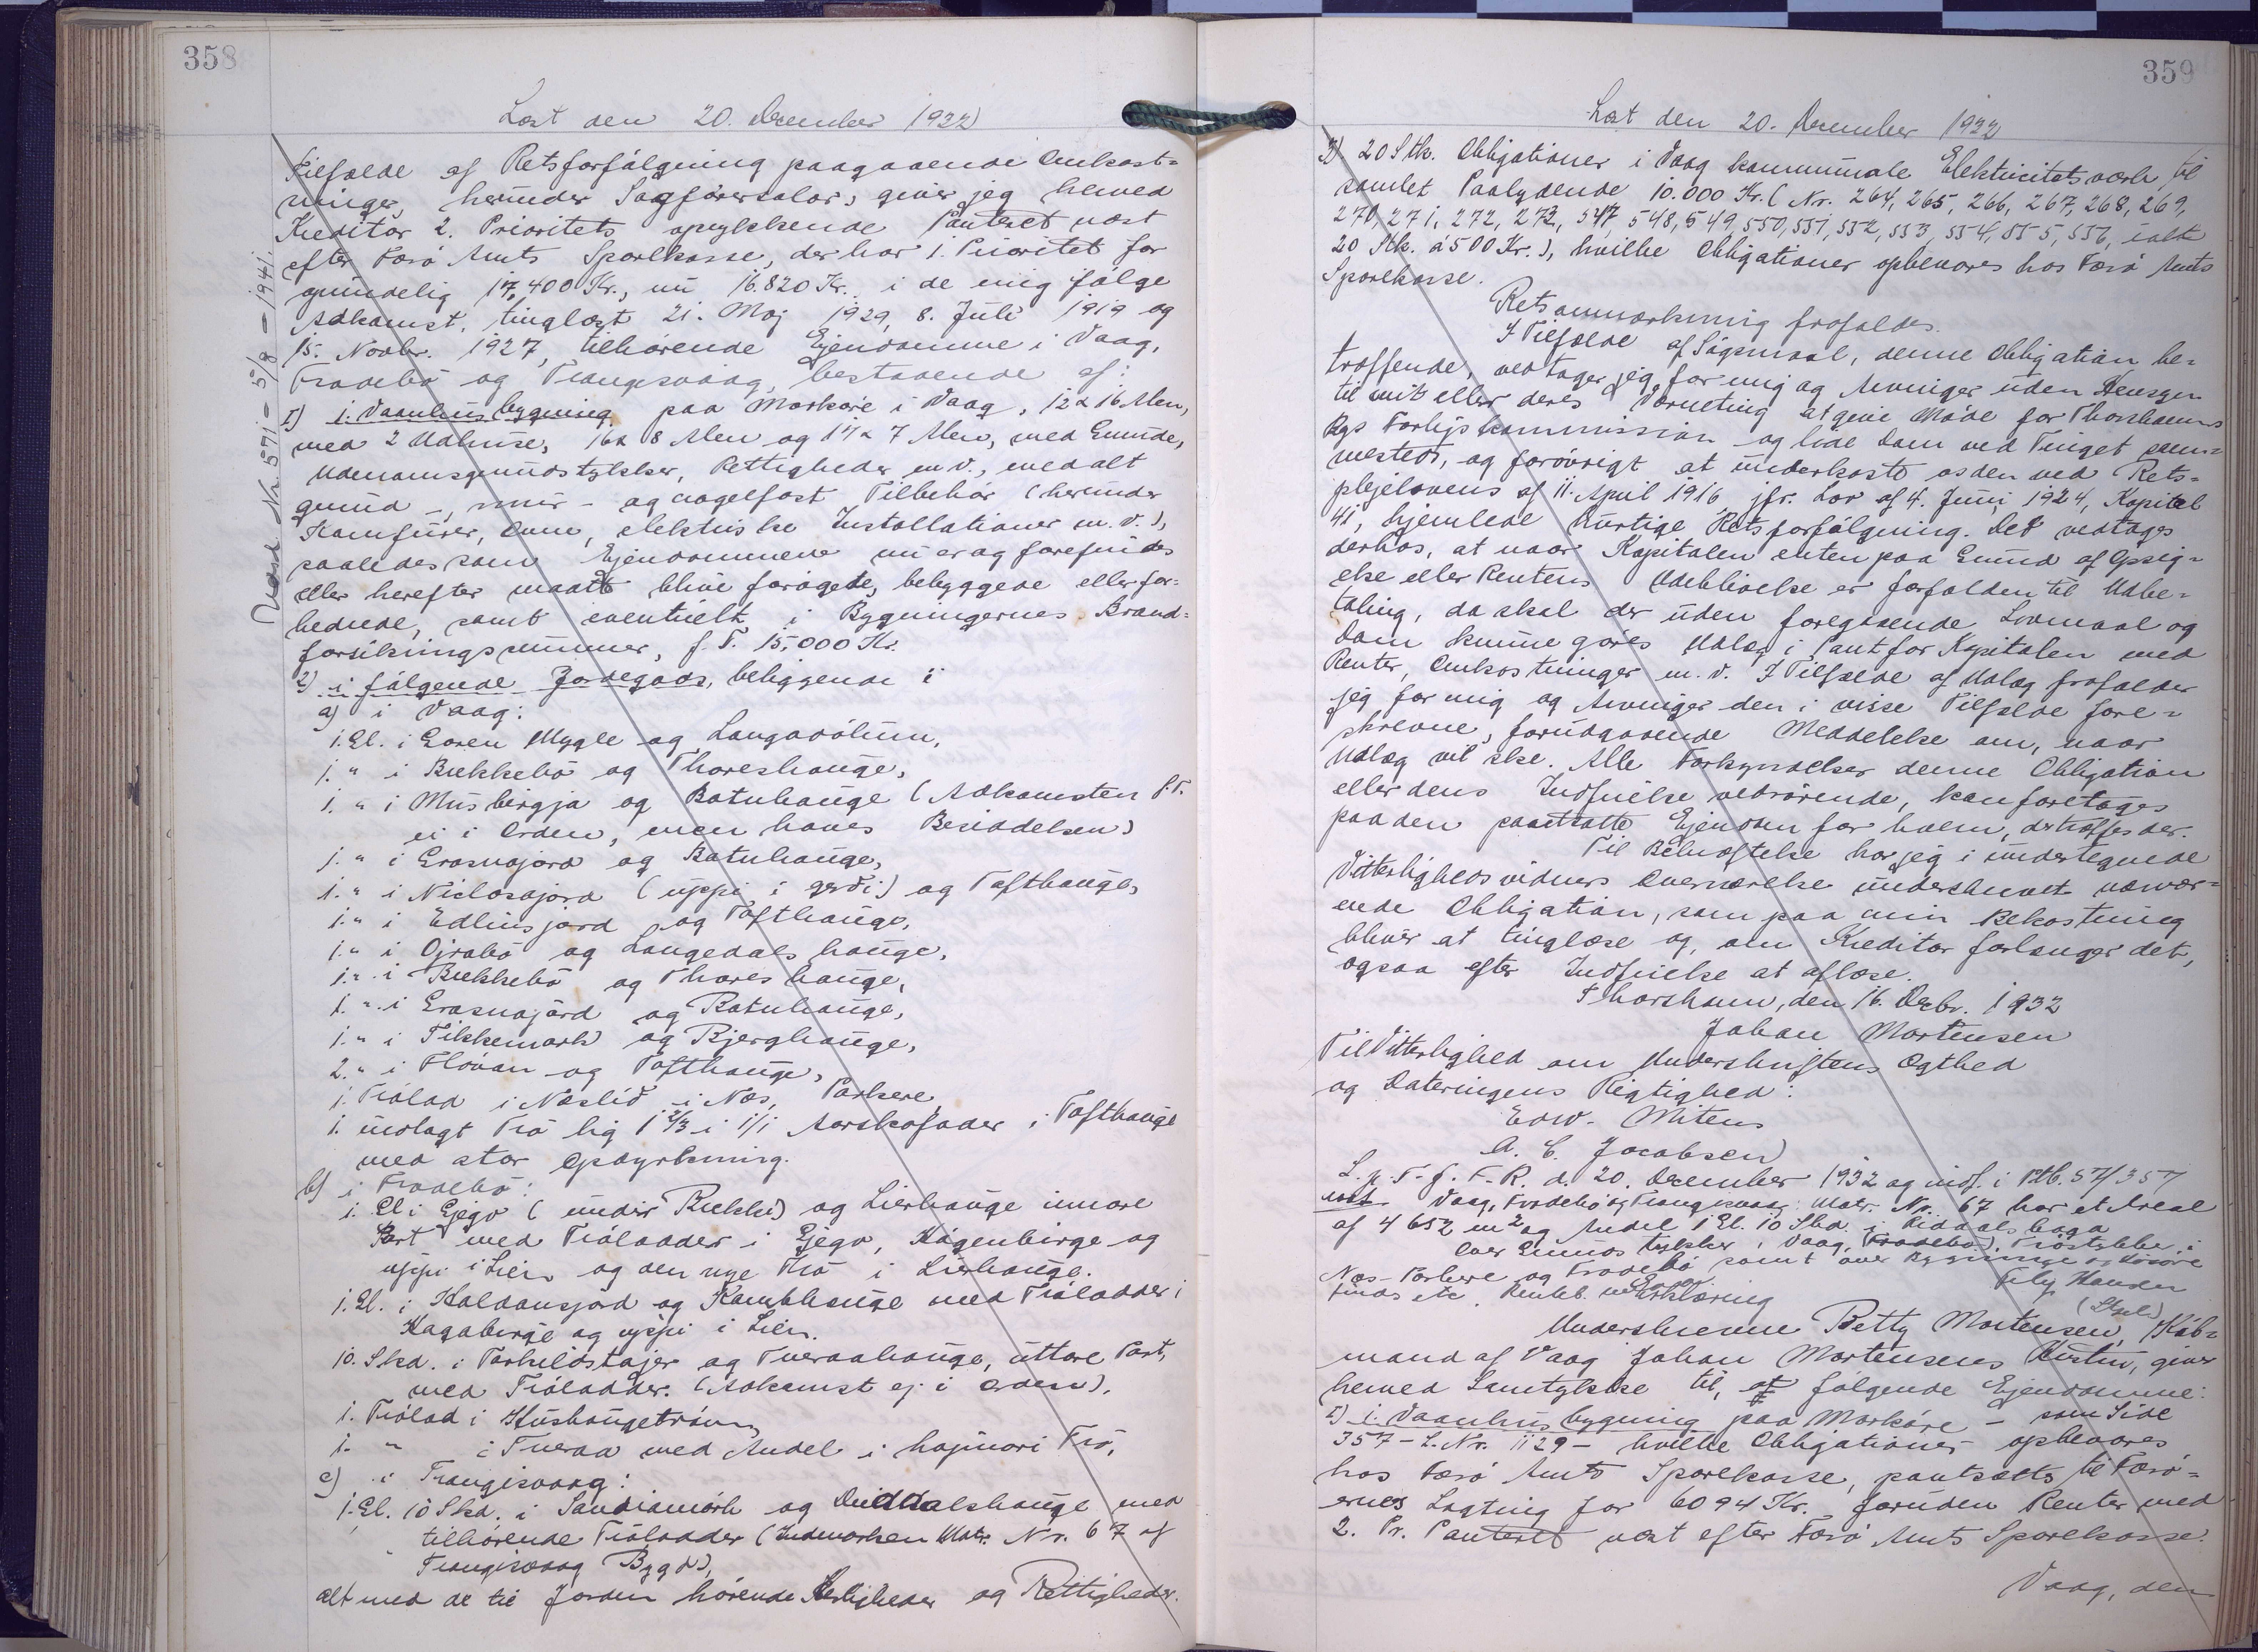 358
Læst den 20. December 1932
Tilfælde af Retsforfølgning paagaaende Omkost-
ninger, herunder Sagførersalær, giver jeg herved
Kreditor 2. Prioritets oprykkende Panteret næst
efter Færø Amts Sparekasse, der har 1. Prioritet for
oprindelig 17,400 Kr., nu 16.820 Kr. i de mig ifølge
Adkomst, tinglæst 21. Maj 1929, 8. Juli 1919 og
15. Novbr. 1927, tilhørende Ejendomme i Vaag,
Frodebø og Trangisvaag, bestaaende af:
I) 1. Vaanhusbygning paa Markøre i Vaag, 12 x 16 Alen,
med 2 Udhuse, 16 x 8 Alen og 17 x 7 Alen, med Grunde,
Udenomsgrundstykker, Rettigheder m.v., med alt
grund-, mur- og nagelfast Tilbehør (herunder
Komfurer, Ovne, elektriske Installationer m.v.),
saaledes som Ejendommene nu er og forefindes
eller herefter maatte blive forøgede, bebyggede eller for-
bedrede, samt eventuelt i Bygningernes Brand-
forsikringssummer, f. T. 15,000 Kr.
2) i følgende Jordegods, beliggende i
a) i Vaag:
1. Gl. i Goren Mygle og Langadølum,
1. " i Bekkebø og Thoreshauge,
1. " i Musbirgja og Botnhauge (Adkomsten f.T.
ei i Orden, men haves Besiddelsen)
1. " i Grasnajord og Botnhauge,
1. " i Niclasajord (uppi i gerði) og Tofthauge,
1. " i Edlinsjord og Tofthauge,
1. " i Ojrabø og Langedals hauge,
1. " i Bekkebø og Thoreshauge,
1. " i Grasnajord og Botnhauge,
1. " i Tikkemark og Bjerghauge,
2. " i Flövan og Tofthauge,
1. Trølad i Neslid i Næs, Porkere,
1. indlagt Trø lig 1 2/3 i 1/1 Aarskofoder i Tofthauge
med stor Opdyrkning.
b) i Frodebø:
1. Gl i Gjegv (undir Bekki) og Lierhauge innare
Part med Trøladder i Gjegv, Høgenbirge og
uppi i Lien og den nye Trø i Lierhauge.
1. Gl. i Haldansjord og Kambhauge med Trøladder i
Hagabirge og uppi i Lien.
10. Skd. i Torkildstajer og Tveraahauge, uttare Part,
med Trøladder. (Adkomst ej i Orden),
1. Trølad i Hushaugetrøum,
1. " i Tveraa med Andel i hajmari Trø,
c) i Trangisvaag:
1. Gl. 10 Skd. i Sandiamørk og Ouiddalshauge med
tilhørende Trøladder (Indmarken Matr. Nr. 67 af
Trangisvaag Bygd),
alt med de til Jorden hørende Herligheder og Rettigheder.
Udsl. Nr. 571 - 5/8 - 1941.
359
Læst den 20. December 1932
3) 20 Stk. Obligationer i Vaag kommunale Elektricitetsværk til
samlet Paalydende 10.000 Kr. (Nr. 264, 265, 266, 267, 268, 269,
270, 271, 272, 273, 547, 548, 549, 550, 551, 552, 553, 554, 555, 556, ialt
20 Stk. á 500 Kr.), hvilke Obligationer opbevares hos Færø Amts
Sparekasse.
Retsanmærkning frafaldes.
I Tilfælde af Søgsmaal, denne Obligation be-
træffende, vedtager jeg for mig og Arvinger uden Hensyn
til mit eller deres Værneting at give Møde for Thorshavns
Bys Forligskommission og lide Dom ved Tinget sam-
mesteds, og forøvrigt at underkaste os den ved Rets-
plejelovens af 11. April 1916 jfr. Lov af 4. Juni 1924, Kapitel
41, hjemlede hurtige Retsforfølgning. Det vedtages
derhos, at naar Kapitalen enten paa Grund af Opsig-
else eller Rentens Udeblivelse er forfalden til Udbe-
taling, da skal der uden foregaaende Lovmaal og
Dom kunne gøres Udlæg i Pant for Kapitalen med
Renter, Omkostninger m.v. I Tilfælde af Udlæg frafalder
jeg for mig og Arvinger den i visse Tilfælde fore-
skrevne, forudgaaende Meddelelse om, naar
Udlæg vil ske. Alle Forkyndelser denne Obligation
eller dens Indfrielse vedrørende, kan foretages
paa den pantsatte Ejendom for hvem, der træffes der.
Til Bekræftelse har jeg i undertegnede
Vitterlighedsvidners Overværelse underskrevet nærvær-
ende Obligation, som paa min Bekostning
bliver at tinglæse og, om Kreditor forlanger det,
ogsaa efter Indfrielse at aflæse.
Thorshavn, den 16. Decbr. 1932
Johan Mortensen
Til Vitterlighed om Underskriftens Ægthed
og Dateringens Rigtighed:
Edw. Mitens
A. C. Jacobsen
L. p. T. f. F. R. d. 20. December 1932 og indf. i Ptb. 57/357
not. Vaag, Frodebø og Trangisvaag: Matr. Nr. 67 har et Areal
af 4652 m2 og Andel 1 Gl. 10 Skd. i Ouiddalshaga
Over Grundstykker i Vaag, Frodebø, Trøstykke i
Nes-Porkere og Frodebø samt over Bygninge
findes etc. Renteb. Erklæring
Hansen
(Stpl.)
Underskrevne Betty Mortensen, Køb-
mand af Vaag Johan Mortensens Hustru, giver
herved Samtykke til, at følgende Ejendomme:
I) 1. Vaanhusbygning paa Markøre - som Side
357 - L. Nr. 1129 - hvilke Obligationer opbevares
hos Færø Amts Sparekasse, pantsætts til Færø-
ernes Lagting for 6094 Kr. foruden Renter med
2. Pr. Panteret næst efter Færø Amts Sparekasse.
Vaag, den